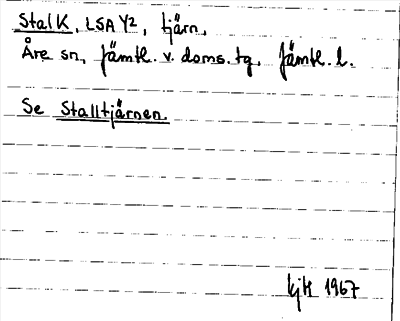 Stal K, LSA Y2, tjärn,
Åre sn, Jämtl. v. doms. tg. Jämtl. l.
Se Stalltjärnen.
1967